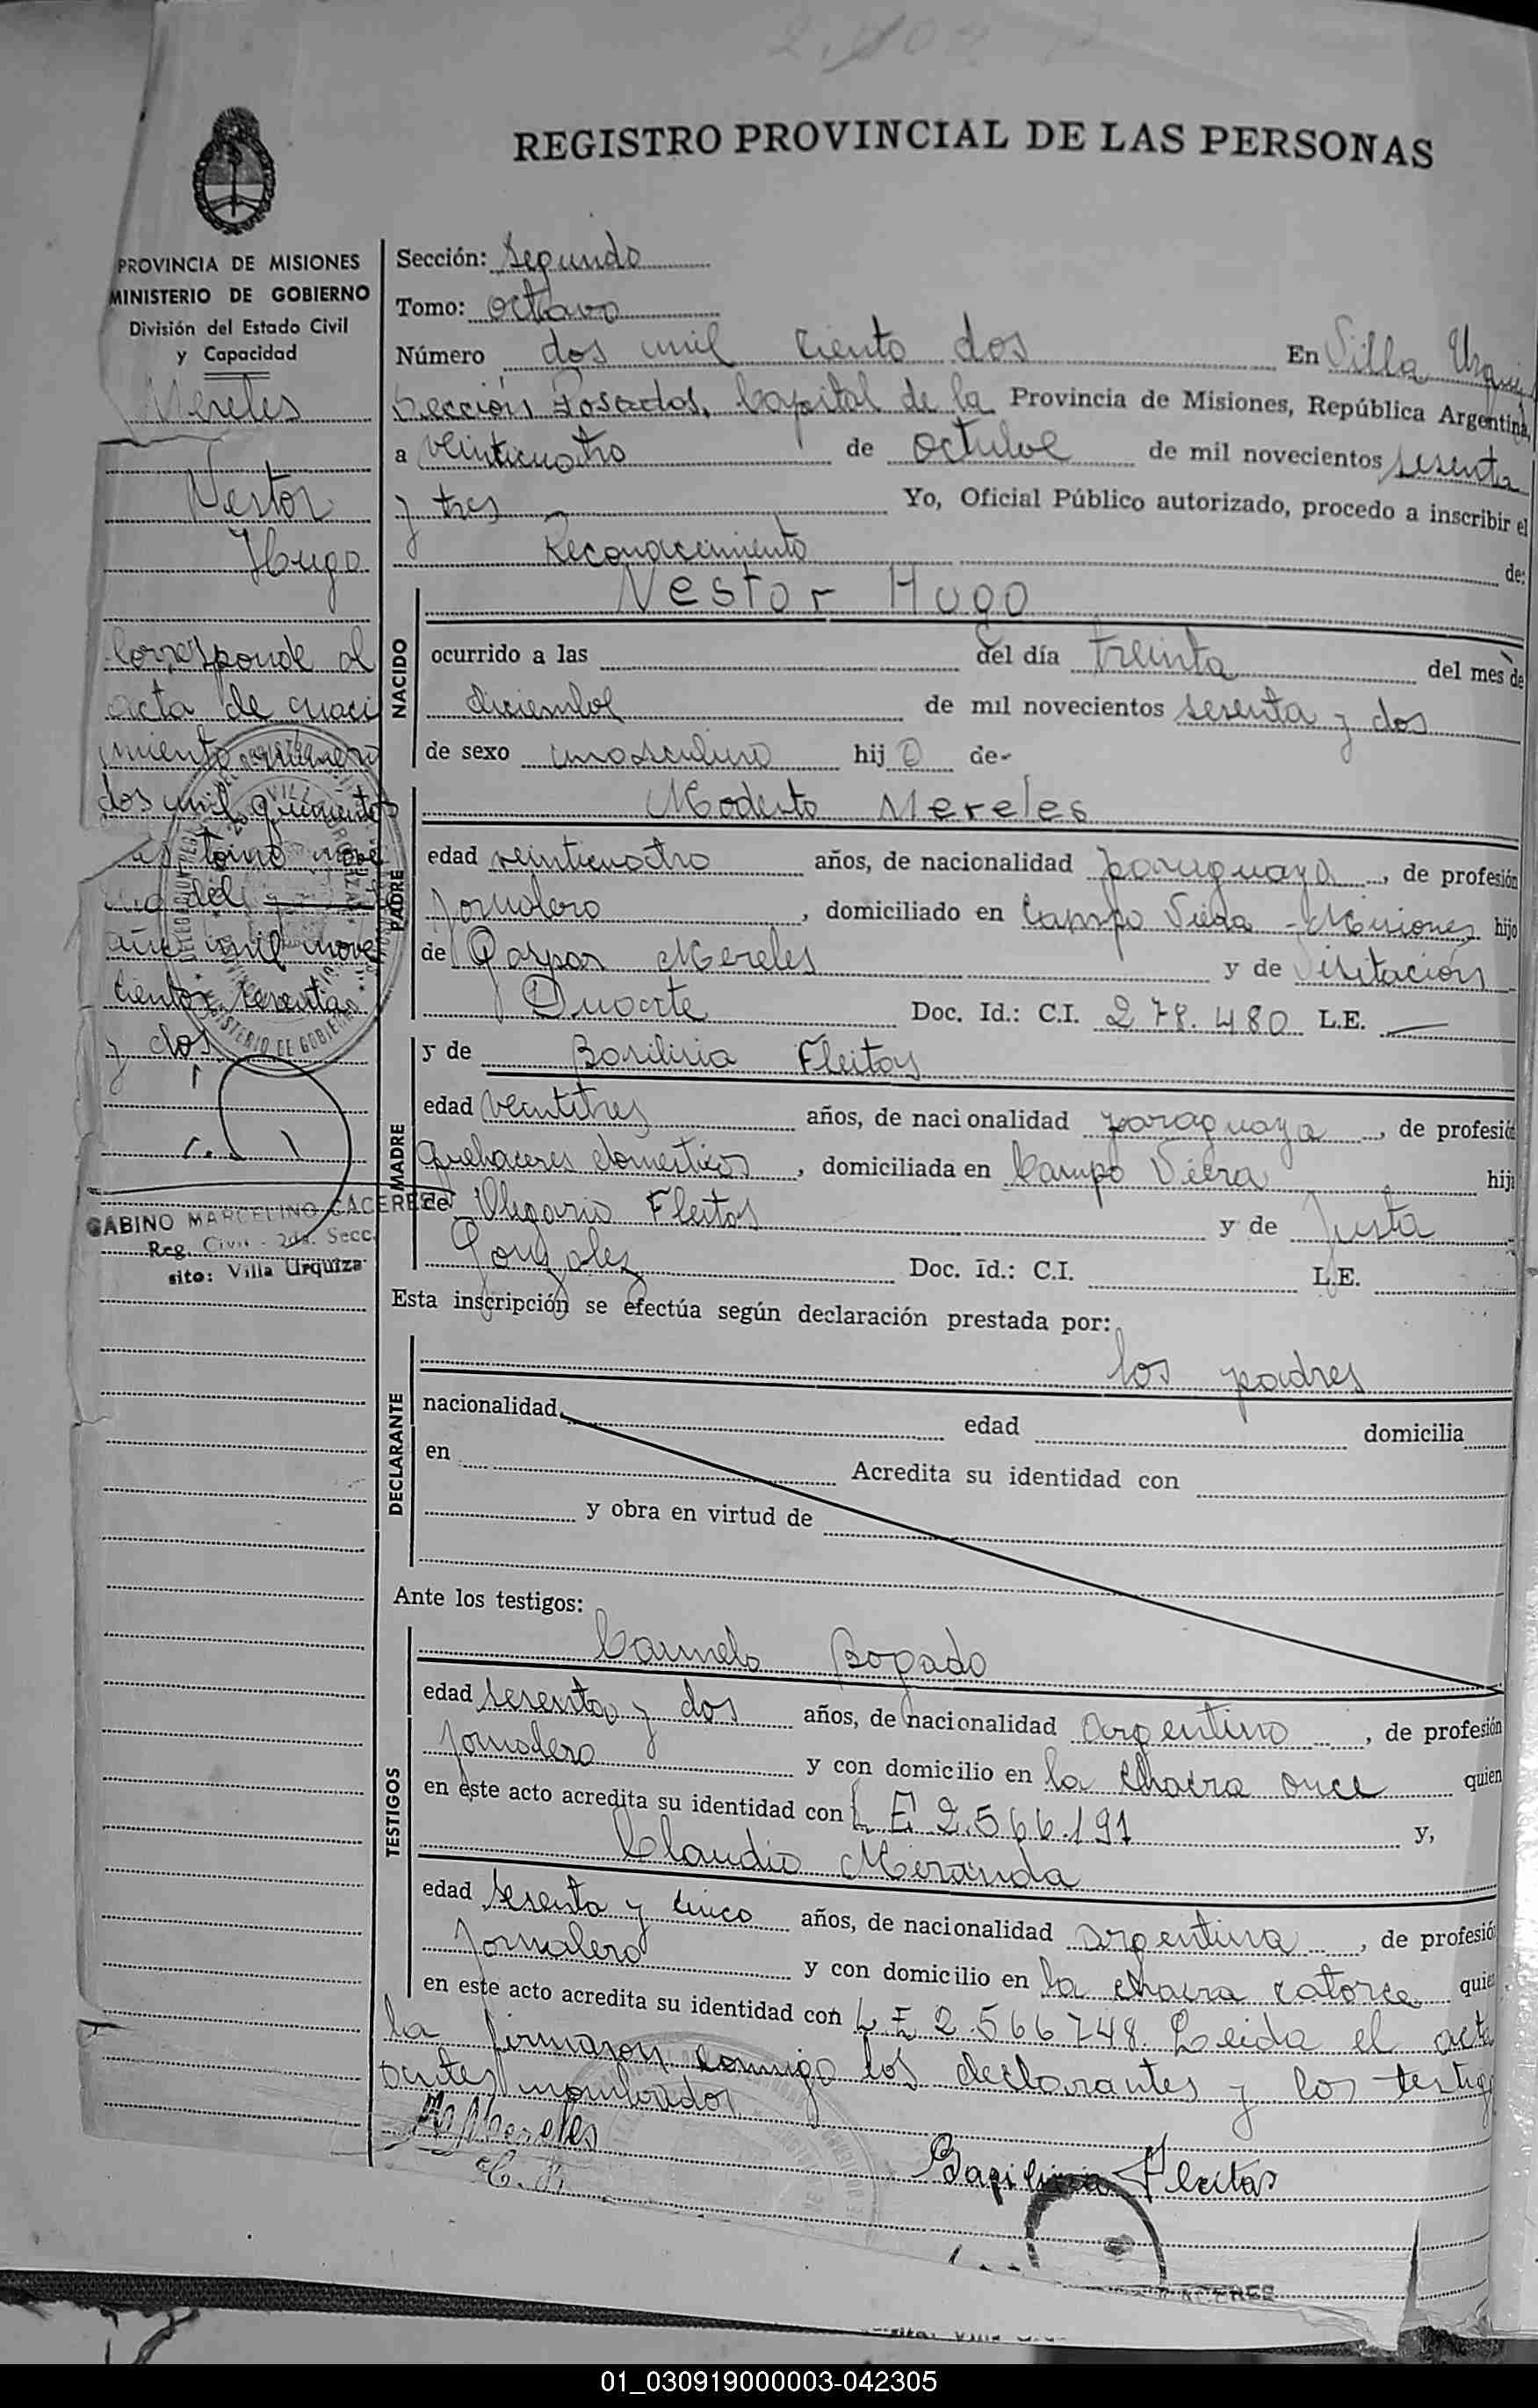 REGISTRO PROVINCIAL DE LAS PERSONAS
PROVINCIA DE MISIONES
MINISTERIO DE GOBIERNO
División del Estado Civil
y Capacidad
Mereles
Nestor
Hugo
Corresponde al
acta de naci
miento número
dos mil quinientos
tomo nove
no del
año mil nove
cientos sesenta
y dos
GABINO MARCELINO CACERES
Reg. Civil - 2da. Secc.
sito: Villa Urquiza
Sección: Segundo
Tomo: octavo
Número dos mil ciento dos En Villa Urquiza
Sección Posadas, Capital de la Provincia de Misiones, República Argentina,
a veinticuatro de octubre de mil novecientos sesenta
y tres Yo, Oficial Público autorizado, procedo a inscribir el
Reconocimiento de:
Nestor Hugo
NACIDO
ocurrido a las del día treinta del mes de
diciembre de mil novecientos sesenta y dos
de sexo masculino hijo de
Modesto Mereles
PADRE
edad veinticuatro años, de nacionalidad paraguaya, de profesión
jornalero, domiciliado en Campo Viera - Misiones hijo
de Gaspar Mereles y de Visitación
Duarte Doc. Id.: C.I. 278.480 L.E. —
y de Basilisia Fleitas
MADRE
edad veintitres años, de nacionalidad paraguaya, de profesión
Quehaceres domesticos, domiciliada en Campo Viera hij
de Olegario Fleitas y de Justa
Gonzalez Doc. Id.: C.I. L.E.
Esta inscripción se efectúa según declaración prestada por:
los padres
DECLARANTE
nacionalidad edad domicilia
en Acredita su identidad con
y obra en virtud de
Ante los testigos:
Carmelo Bogado
TESTIGOS
edad sesenta y dos años, de nacionalidad argentino, de profesión
jornalero y con domicilio en la chacra once quien
en este acto acredita su identidad con L E 2.566.191 y,
Claudio Miranda
edad sesenta y cinco años, de nacionalidad argentina, de profesión
jornalero y con domicilio en la chacra catorce quien
en este acto acredita su identidad con L.E 2.566748. Leida el acta
la firmaron conmigo los declarantes y los testigos
antes nombrados
Mereles
Basilisia Fleitas
01_030919000003-042305